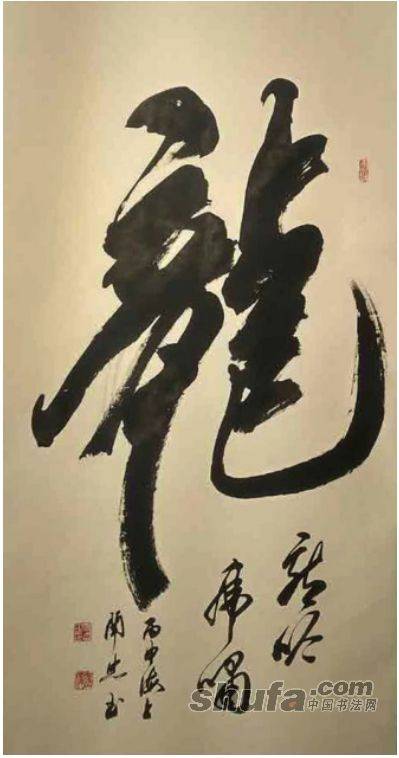 龍
龍吟
虎嘯
丙申海上
書
shufa.com
中国书法网